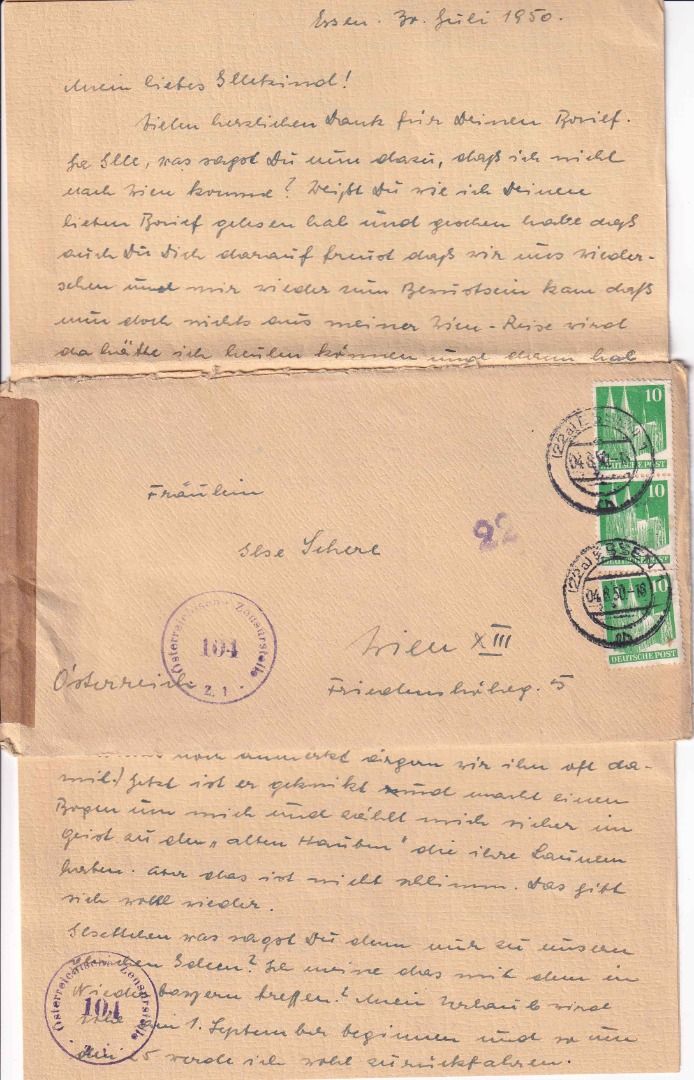 Essen. 30. Juli 1950.
Mein liebes Ilsekind!
Vielen herzlichen Dank für Deinen Brief.
Ja Ilse, was sagst Du nun dazu, daß ich nicht
nach Wien komme? Weißt Du wie ich Deinen
lieben Brief gelesen hab und gesehen habe daß
auch Du Dich darauf freust daß wir uns wieder-
sehen und mir wieder zum Bewustsein kam daß
nun doch nichts aus meiner Wien-Reise wird
da hätte ich heulen können und dann hab
10
DEUTSCHE POST
10
10
DEUTSCHE POST
(22a) ESSEN 1
04.8.50.-18
(22a) ESSEN 1
04.8.50.-18
Fräulein
Ilse Scherl
22
Wien XIII
Österreich
Friedenshöheg. 5
Österreichische Zensurstelle
104
Z. 1
noch anmerkt ärgern wir ihn oft da-
mit.) Jetzt ist er geknikt und macht einen
Bogen um mich und zählt mich sicher im
Geist zu den „alten Hauben" die ihre Launen
haben. Aber das ist nicht schlimm. Das gibt
sich wohl wieder.
Ilsettchen was sagst Du denn nur zu unseren
Ideen? Ja meine das mit dem in
Niederbayern treffen? Mein Urlaub wird
am 1. September beginnen und so um
den 25 werde ich wohl zurückfahren.
Österreichische Zensurstelle
104
Z. 1